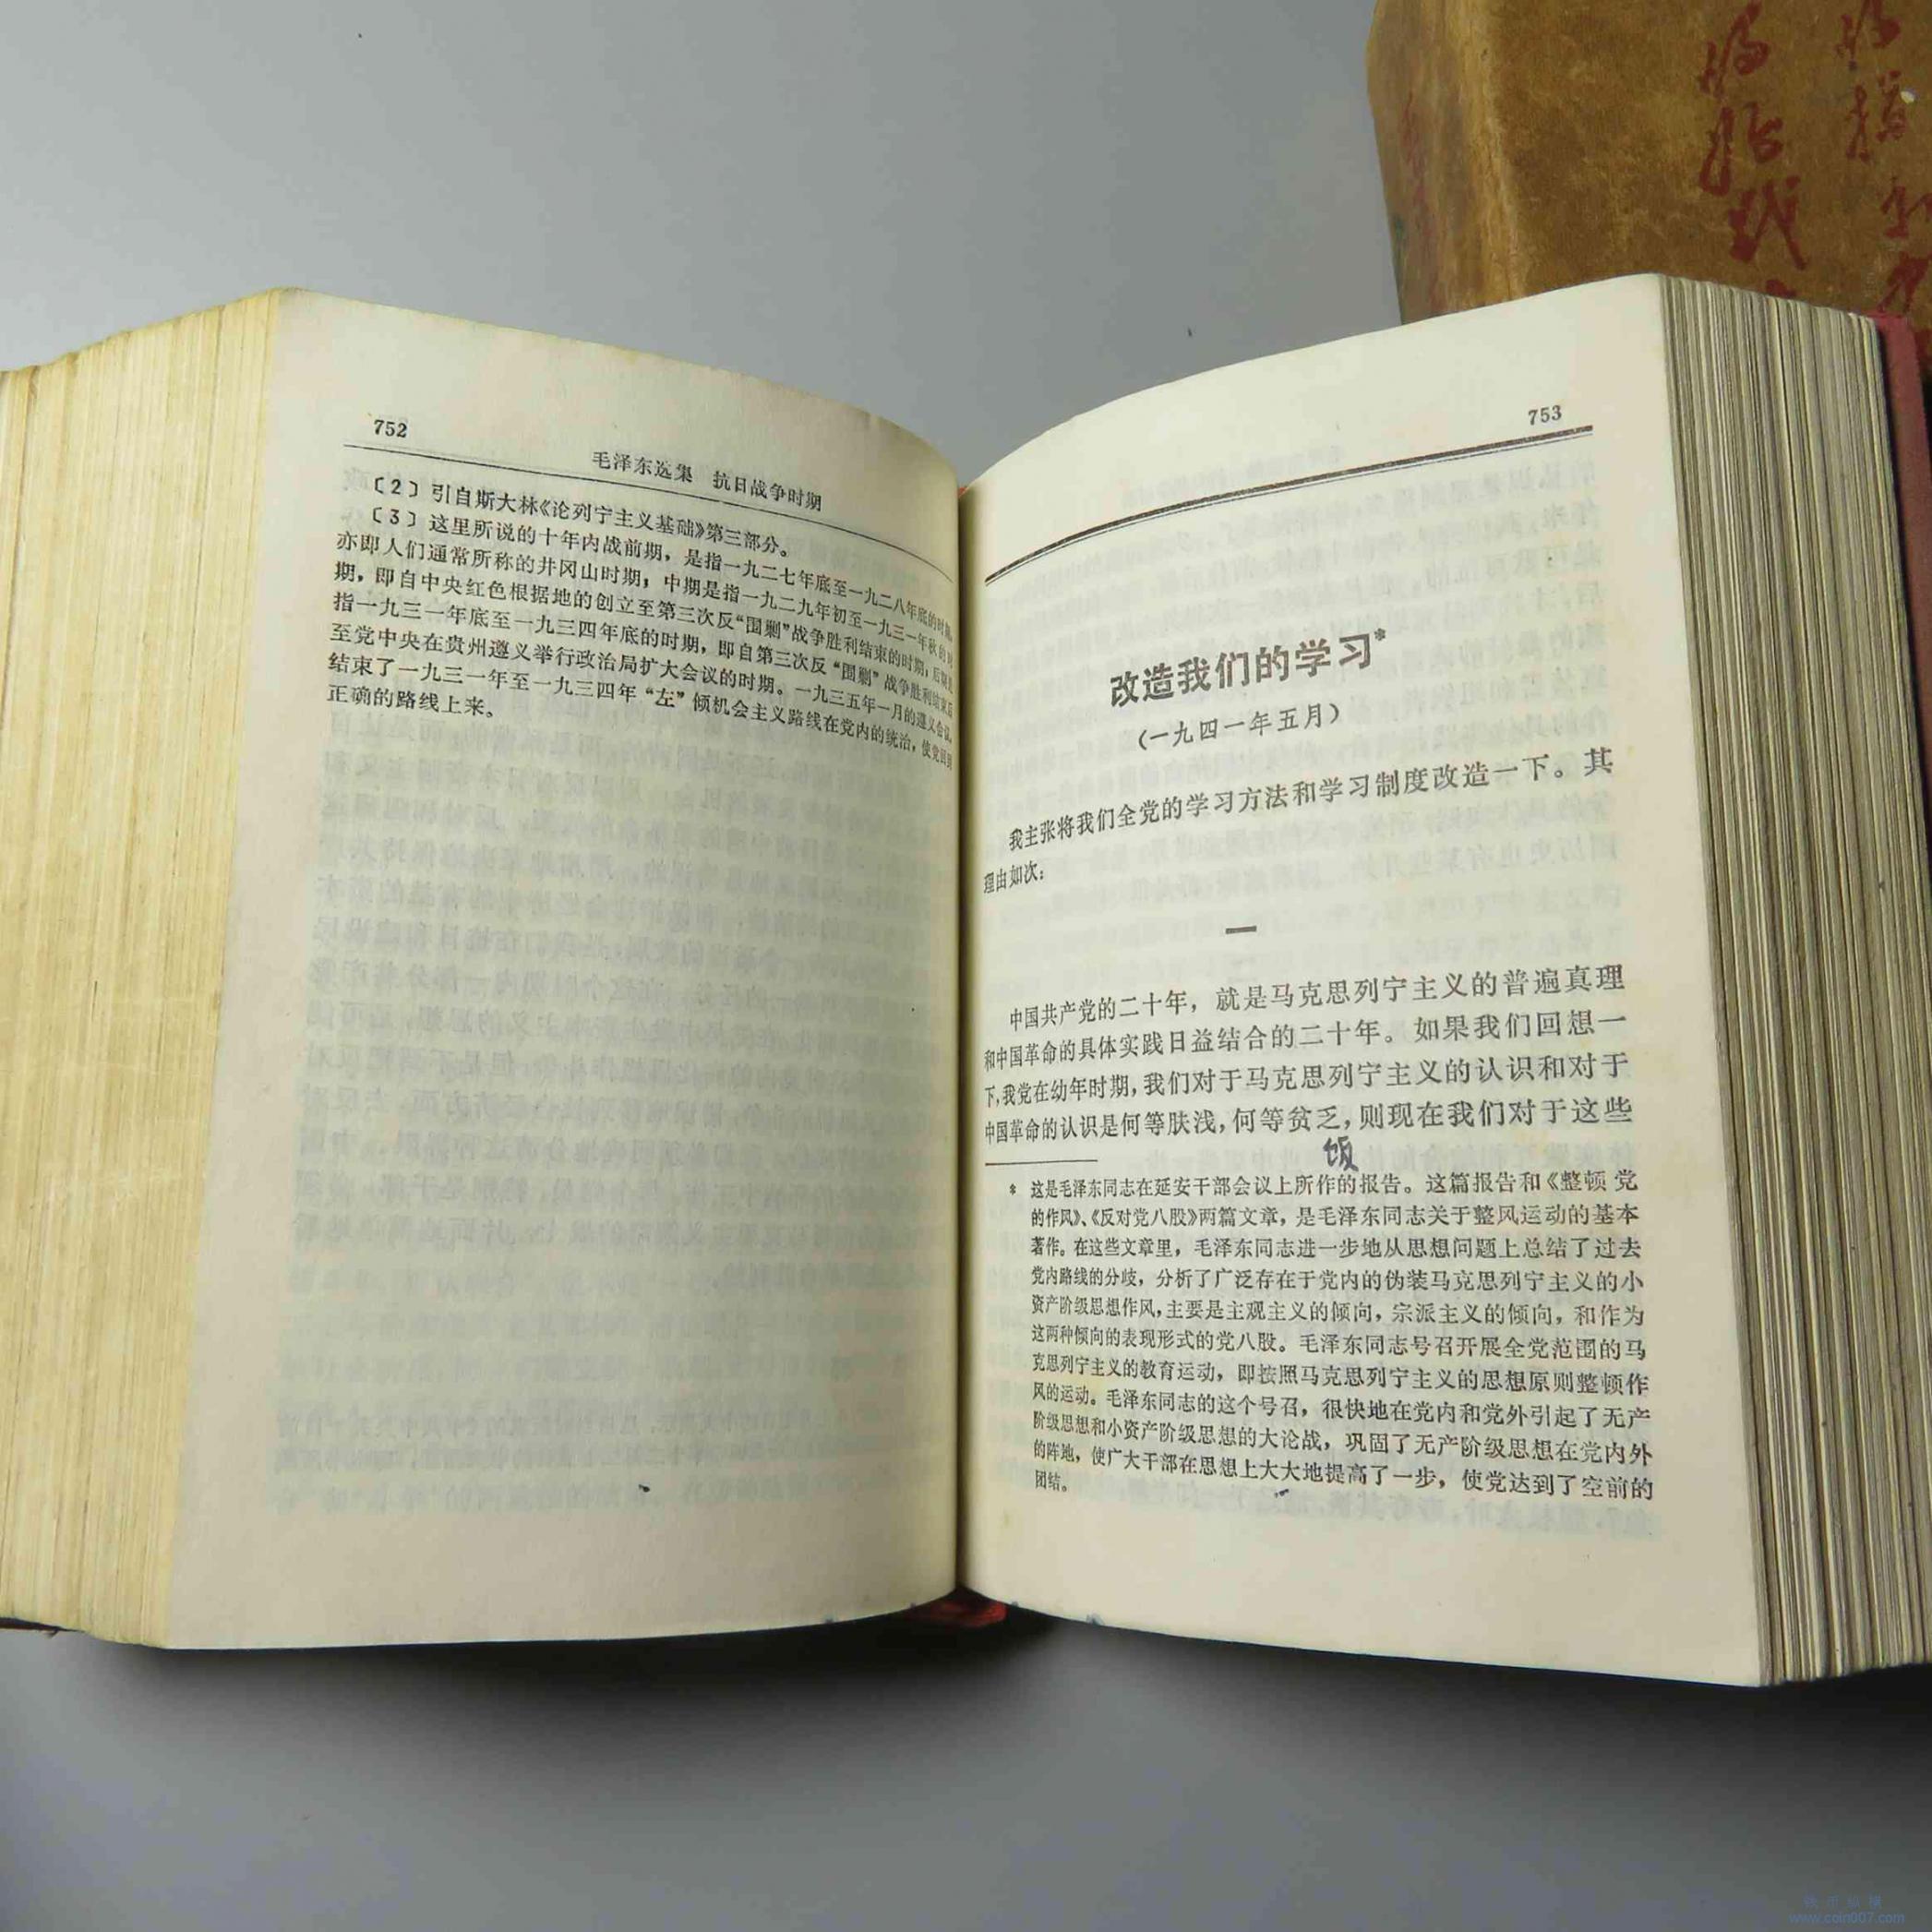 752
毛泽东选集　抗日战争时期
〔2〕引自斯大林《论列宁主义基础》第三部分。
〔3〕这里所说的十年内战前期，是指一九二七年底至一九二八年底的时期，
亦即人们通常所称的井冈山时期；中期是指一九二九年初至一九三一年秋的时
期，即自中央红色根据地的创立至第三次反“围剿”战争胜利结束的时期；后期是
指一九三一年底至一九三四年底的时期，即自第三次反“围剿”战争胜利结束后
至党中央在贵州遵义举行政治局扩大会议的时期。一九三五年一月的遵义会议，
结束了一九三一年至一九三四年“左”倾机会主义路线在党内的统治，使党回到
正确的路线上来。
753
改造我们的学习*
（一九四一年五月）
我主张将我们全党的学习方法和学习制度改造一下。其
理由如次：
一
中国共产党的二十年，就是马克思列宁主义的普遍真理
和中国革命的具体实践日益结合的二十年。如果我们回想一
下，我党在幼年时期，我们对于马克思列宁主义的认识和对于
中国革命的认识是何等肤浅，何等贫乏，则现在我们对于这些
饭
* 这是毛泽东同志在延安干部会议上所作的报告。这篇报告和《整顿党
的作风》、《反对党八股》两篇文章，是毛泽东同志关于整风运动的基本
著作。在这些文章里，毛泽东同志进一步地从思想问题上总结了过去
党内路线的分歧，分析了广泛存在于党内的伪装马克思列宁主义的小
资产阶级思想作风，主要是主观主义的倾向，宗派主义的倾向，和作为
这两种倾向的表现形式的党八股。毛泽东同志号召开展全党范围的马
克思列宁主义的教育运动，即按照马克思列宁主义的思想原则整顿作
风的运动。毛泽东同志的这个号召，很快地在党内和党外引起了无产
阶级思想和小资产阶级思想的大论战，巩固了无产阶级思想在党内外
的阵地，使广大干部在思想上大大地提高了一步，使党达到了空前的
团结。
www.coin007.com